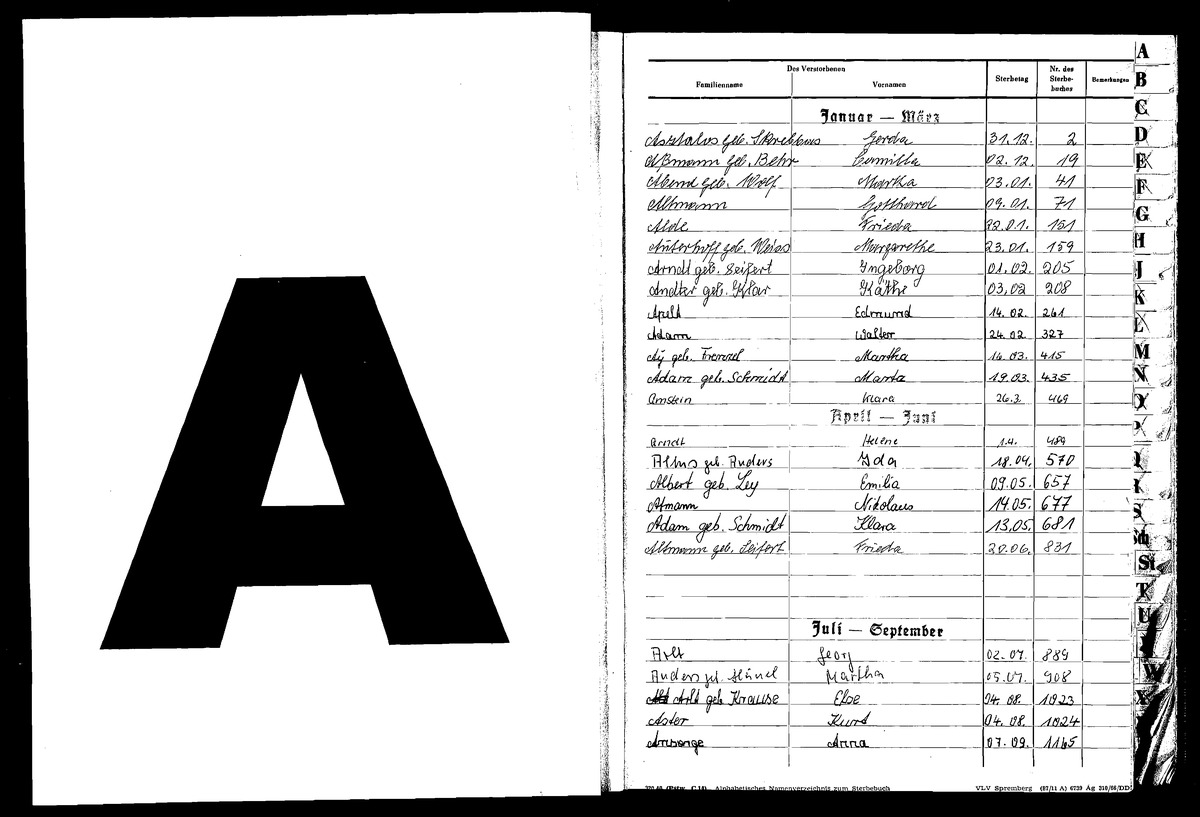 A
Des Verstorbenen
Familienname Vornamen Sterbetag Nr. des Sterbe- buches Bemerkungen
Januar — März
Gerda 31.12. 2
Aßmann geb. Behr Camilla 02.12. 19
Abend geb. Wolf Martha 03.01. 41
Altmann Gotthard 09.01. 71
Alde Frieda 22.01. 151
Auterhoff geb. Weiss Margarethe 23.01. 159
Arndt geb. Seifert Ingeborg 01.02. 205
Andter geb. Klar Käthe 03.02 208
Apelt Edmund 14.02. 261
Adam Walter 24.02. 327
Ay geb. Martha 14.03. 415
Adam geb. Schmidt Marta 19.03. 435
Arnstein Klara 26.3. 469
April — Juni
Arndt Helene 1.4. 489
geb. Anders Ida 18.04. 570
Albert geb. Ley Emilia 09.05. 657
Nikolaus 14.05. 677
Adam geb. Schmidt Klara 13.05. 681
Altmann geb. Seifert Frieda 20.06. 831
Juli — September
Arlt Georg 02.07. 889
Anders geb. Martha 05.07. 908
Arlt geb. Krause Else 04.08. 1023
Aster Kurt 04.08. 1024
Anna 07.09. 1165
Alphabetisches Namenverzeichnis zum Sterbebuch VLV Spremberg (87/11 A) 6739 Ag 310/66/DD
A
B
C
D
E
F
G
H
J
K
L
M
N
O
P
S
Sch
St
T
U
W
X